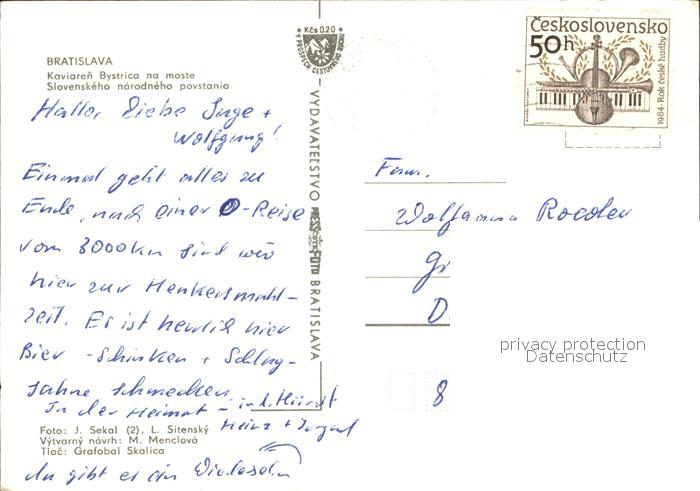 BRATISLAVA
Kaviareň Bystrica na moste
Slovenského národného povstania
Hallo, Liebe Inge +
Wolfgang!
Einmal geht alles zu
Ende, nach einer O-Reise
vom 3000km sind wir
hier zur Henkersmahl-
zeit. Es ist herrlich hier
Bier - Schinken + Schlag-
sahne schmecken.
In der Heimat - in
Heinz +
da gibt es ein Wiedersehn
Foto: J. Sekal (2), L. Sitenský
Výtvarný návrh: M. Menclová
Tlač: Grafobal Skalica
Kčs 0,20
VYDAVATEĽSTVO
FOTO BRATISLAVA
Československo
50h
1984 · Rok české hudby
Fam.
D
8
privacy protection
Datenschutz